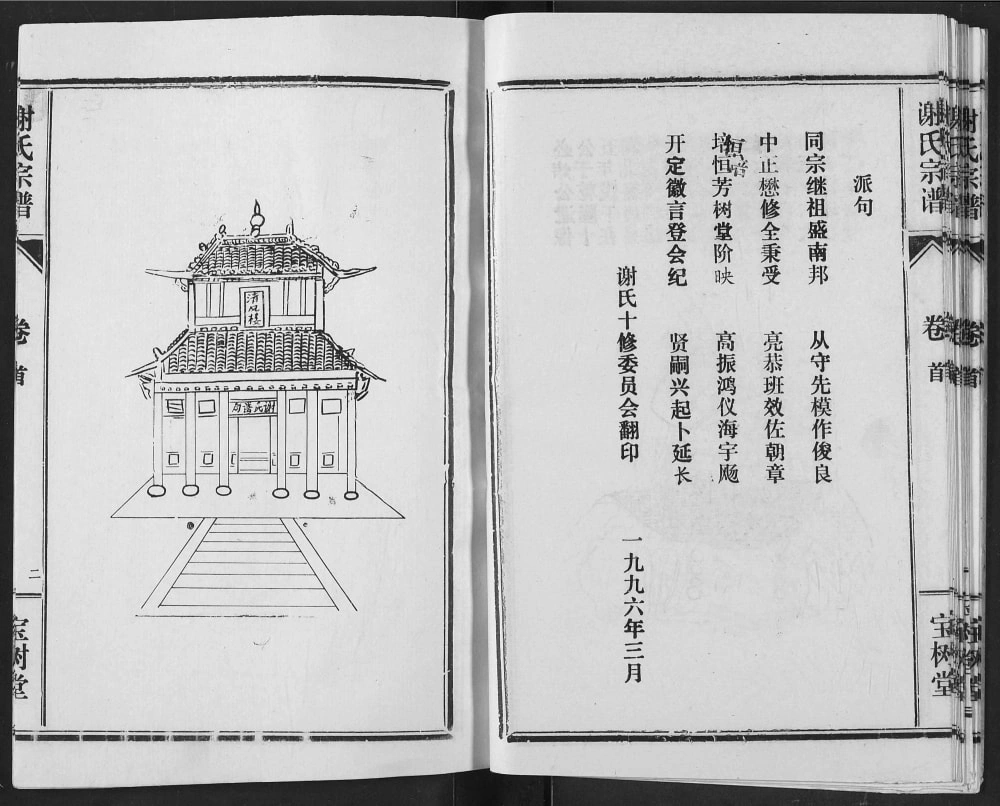 谢氏宗谱
卷首
宝树堂
派句
同宗继祖盛南邦 从守先模作俊良
中正懋修全秉受 亮恭班效佐朝章
培恒芳树堂阶映 高振鸿仪海宇飏
开定徽言登会纪 贤嗣兴起卜延长
谢氏十修委员会翻印
一九九六年三月
清风楼
谢氏谱局
谢氏宗谱
卷首
二
宝树堂